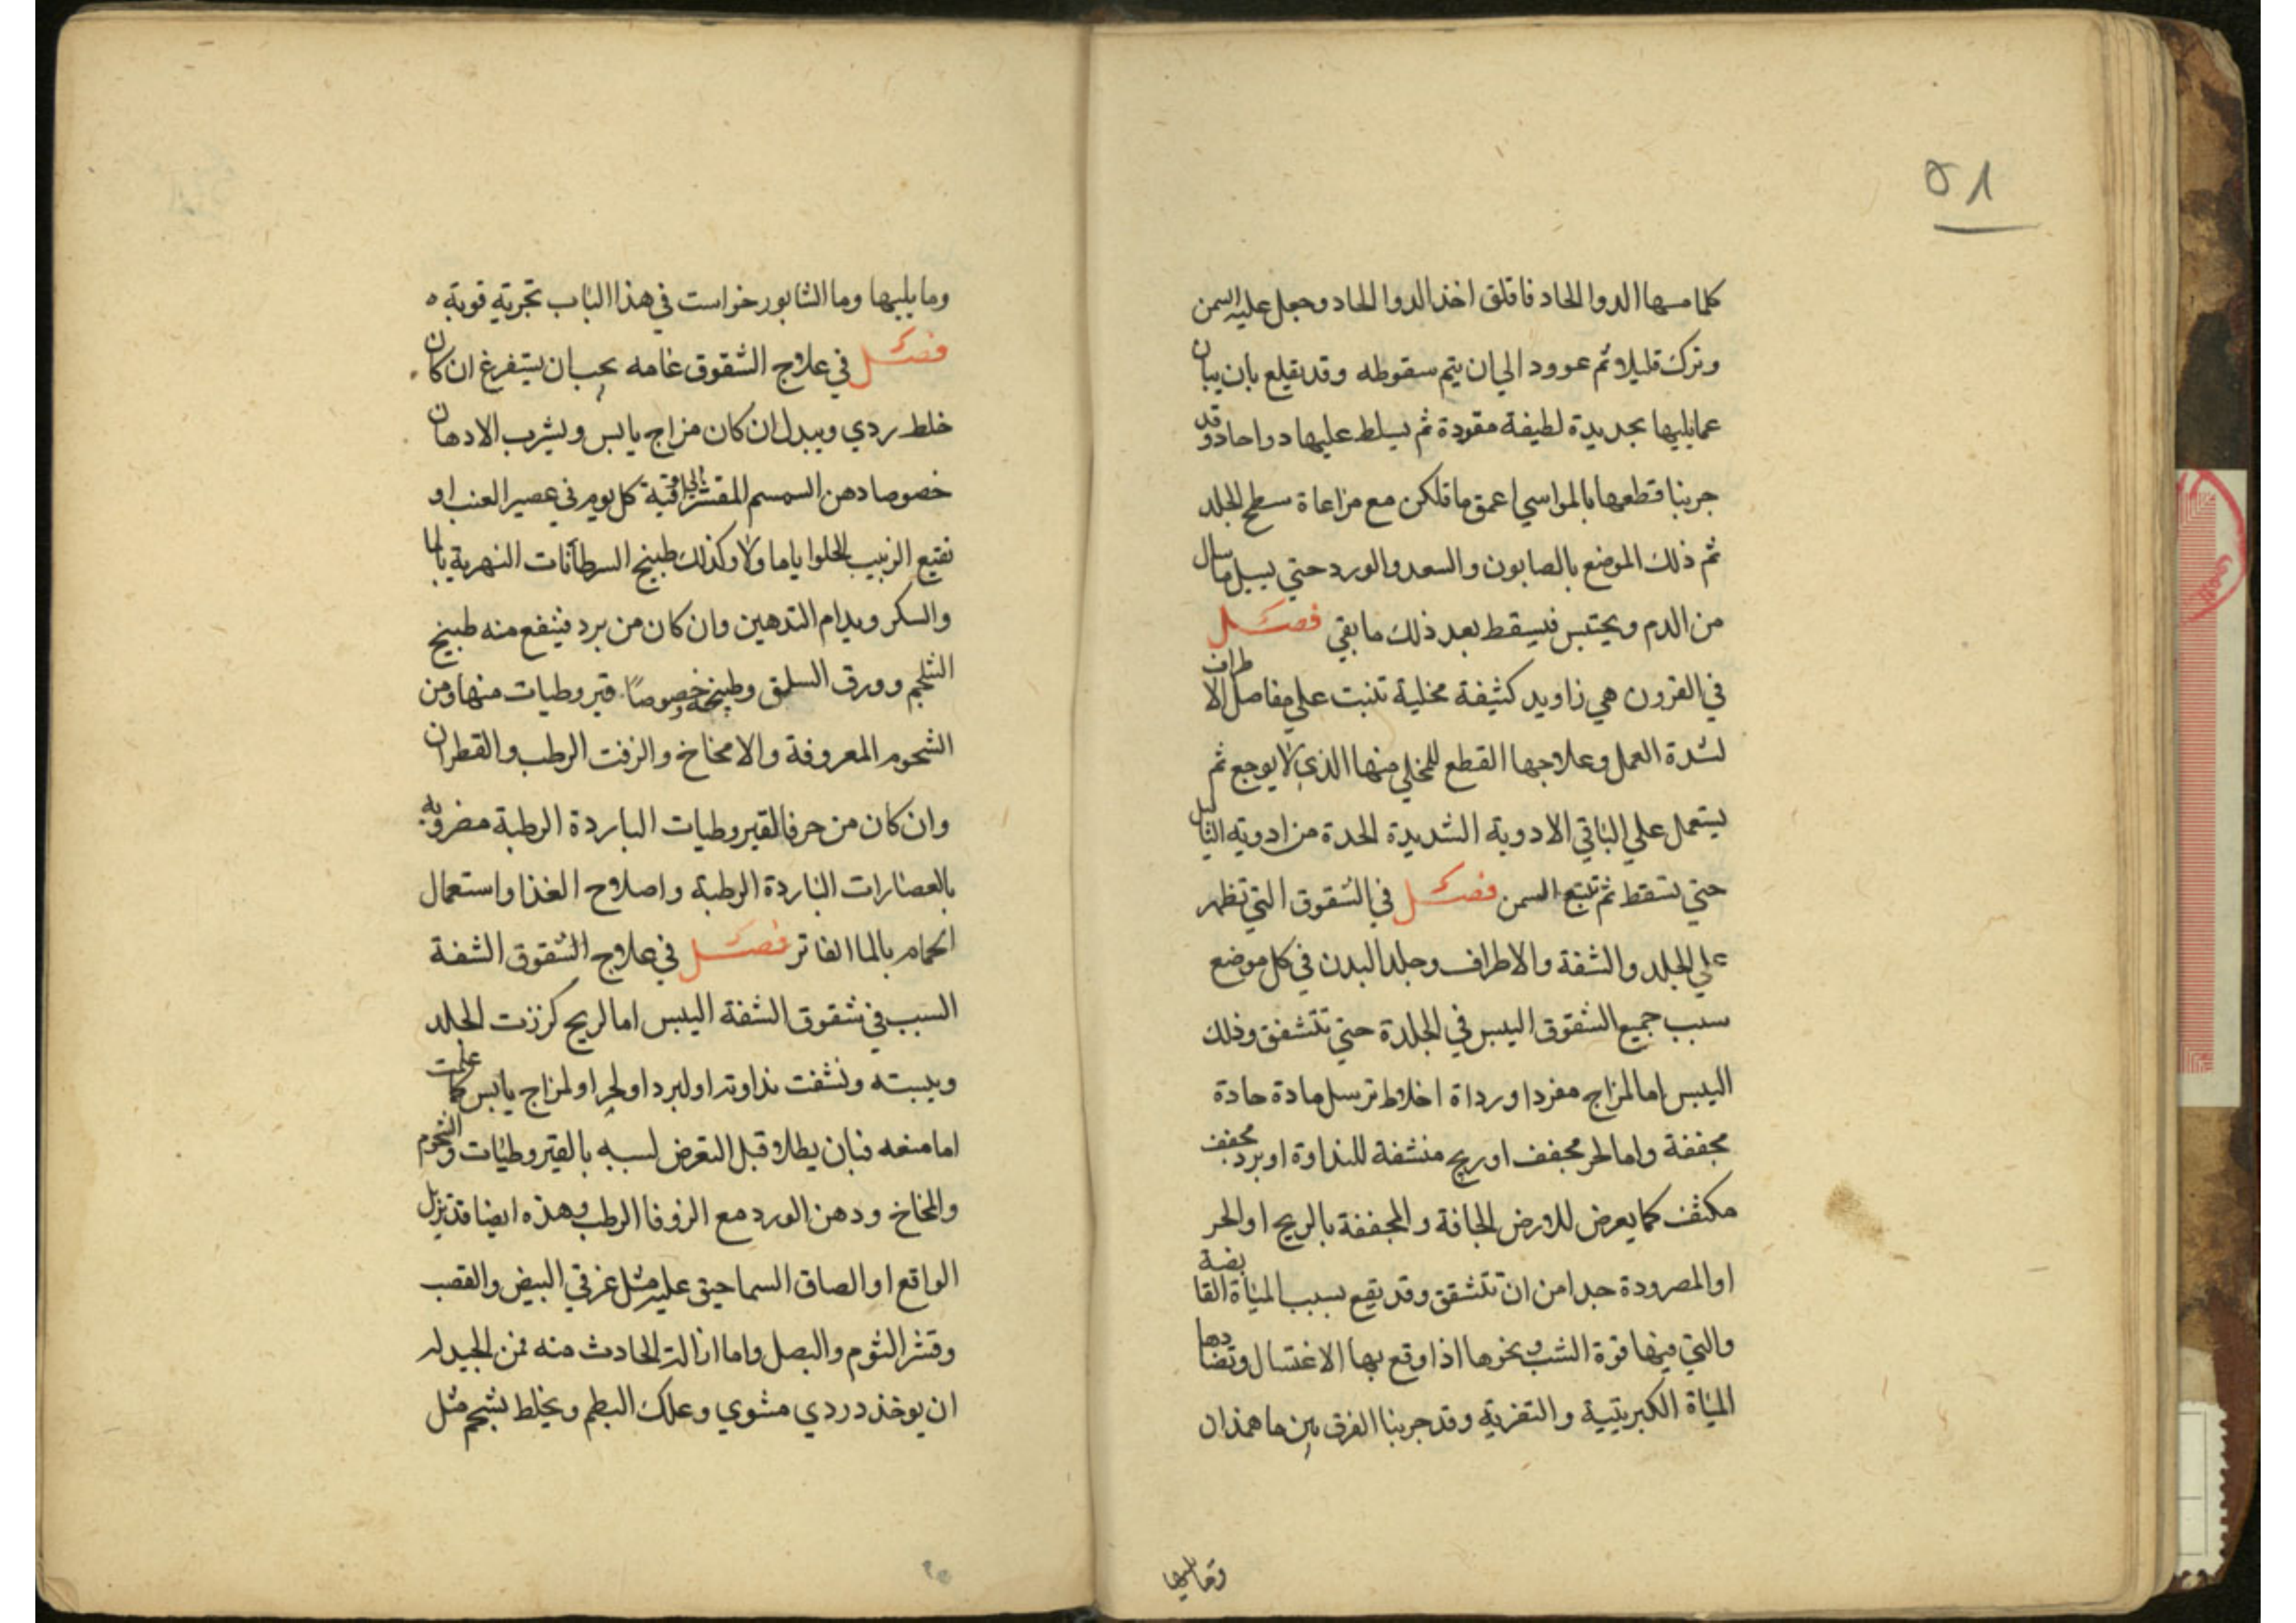 ٥١
كلما مسها الدوا الحاد فاقلق اخذ الدوا الحاد وجعل عليه السمن
وترك قليلا ثم عوود الي ان يتم سقوطه وقد يقلع بان يبان
عما يليها بحديدة لطيفة مقورة ثم يسلط عليها دوا حاد وقد
جربنا قطعها بالمواسي اعمق ما تمكن مع مراعاة سطح الجلد
ثم ذلك الموضع بالصابون والسعد والورد حتي يسيل ما سال
من الدم ويحتبس فيسقط بعد ذلك ما بقي فصل
في القرون هي زاويد كثيفة مخلية تنبت علي مفاصل الاطراف
لشدة العمل وعلاجها القطع للمخلي منها الذي لا يوجع ثم
يستعمل علي الباقي الادوية الشديدة الحدة من ادوية الثاليل
حتي تسقط ثم تتبع السمن فصل في الشقوق التي تظهر
علي الجلد والشفة والاطراف وجلد البدن في كل موضع
سبب جميع الشقوق اليبس في الجلدة حتي تتشقق وذلك
اليبس اما لمزاج مفرد او رداة اخلاط ترسل مادة حادة
مجففة واما لحر مجفف او ريح منشفة للنداوة او برد مجفف
مكثف كما يعرض للارض الجافة والمجففة بالريح او الحر
او المصرودة جدا من ان تتشقق وقد يقع بسبب المياة القابضة
والتي فيها قوة الشب ونحوها اذا وقع بها الاغتسال وتضادها
المياة الكبريتية والتفرية وقد جربنا الفرق بين ما همذان
وما يليها
وما يليها وما الشابورخواست في هذا الباب تجربة قوية ه
فصل في علاج الشقوق عامه يجب ان يستفرغ ان كان
خلط ردي ويبدل ان كان مزاج يابس ويشرب الادهان
خصوصا دهن السمسم المقشر الي اوقية كل يوم في عصير العنب او
نقيع الزبيب الحلوا ياما ولا وكذلك طبيخ السرطانات النهرية بالما
والسكر ويدام التدهين وان كان من برد فينفع منه طبيخ
الشلجم وورق السلق وطبيخه وخصوصا قيروطيات منها ومن
الشحوم المعروفة والامخاخ والزفت الرطب والقطران
وان كان من حر فالقيروطيات الباردة الرطبة مضروبه
بالعصارات الباردة الرطبة واصلاح الغذا واستعمال
الحمام بالما الفاتر فصل في علاج الشقوق الشفة
السبب في شقوق الشفة اليبس اما لريح كززت الجلد
ويبسته ونشفت نداوته او لبرد او لحر او لمزاج يابس كما علمت
اما منعه فبان يطلا قبل التعرض لسببه بالقيروطيات والشحوم
والمخاخ ودهن الورد مع الزوفا الرطب وهذه ايضا قد تزيل
الواقع او الصاق السماحيق عليه مثل غرقي البيض والقصب
وقشر الثوم والبصل واما ازالة الحادث منه فمن الجيد له
ان يوخذ دردي مشوي وعلك البطم ويخلط بشحم مثل